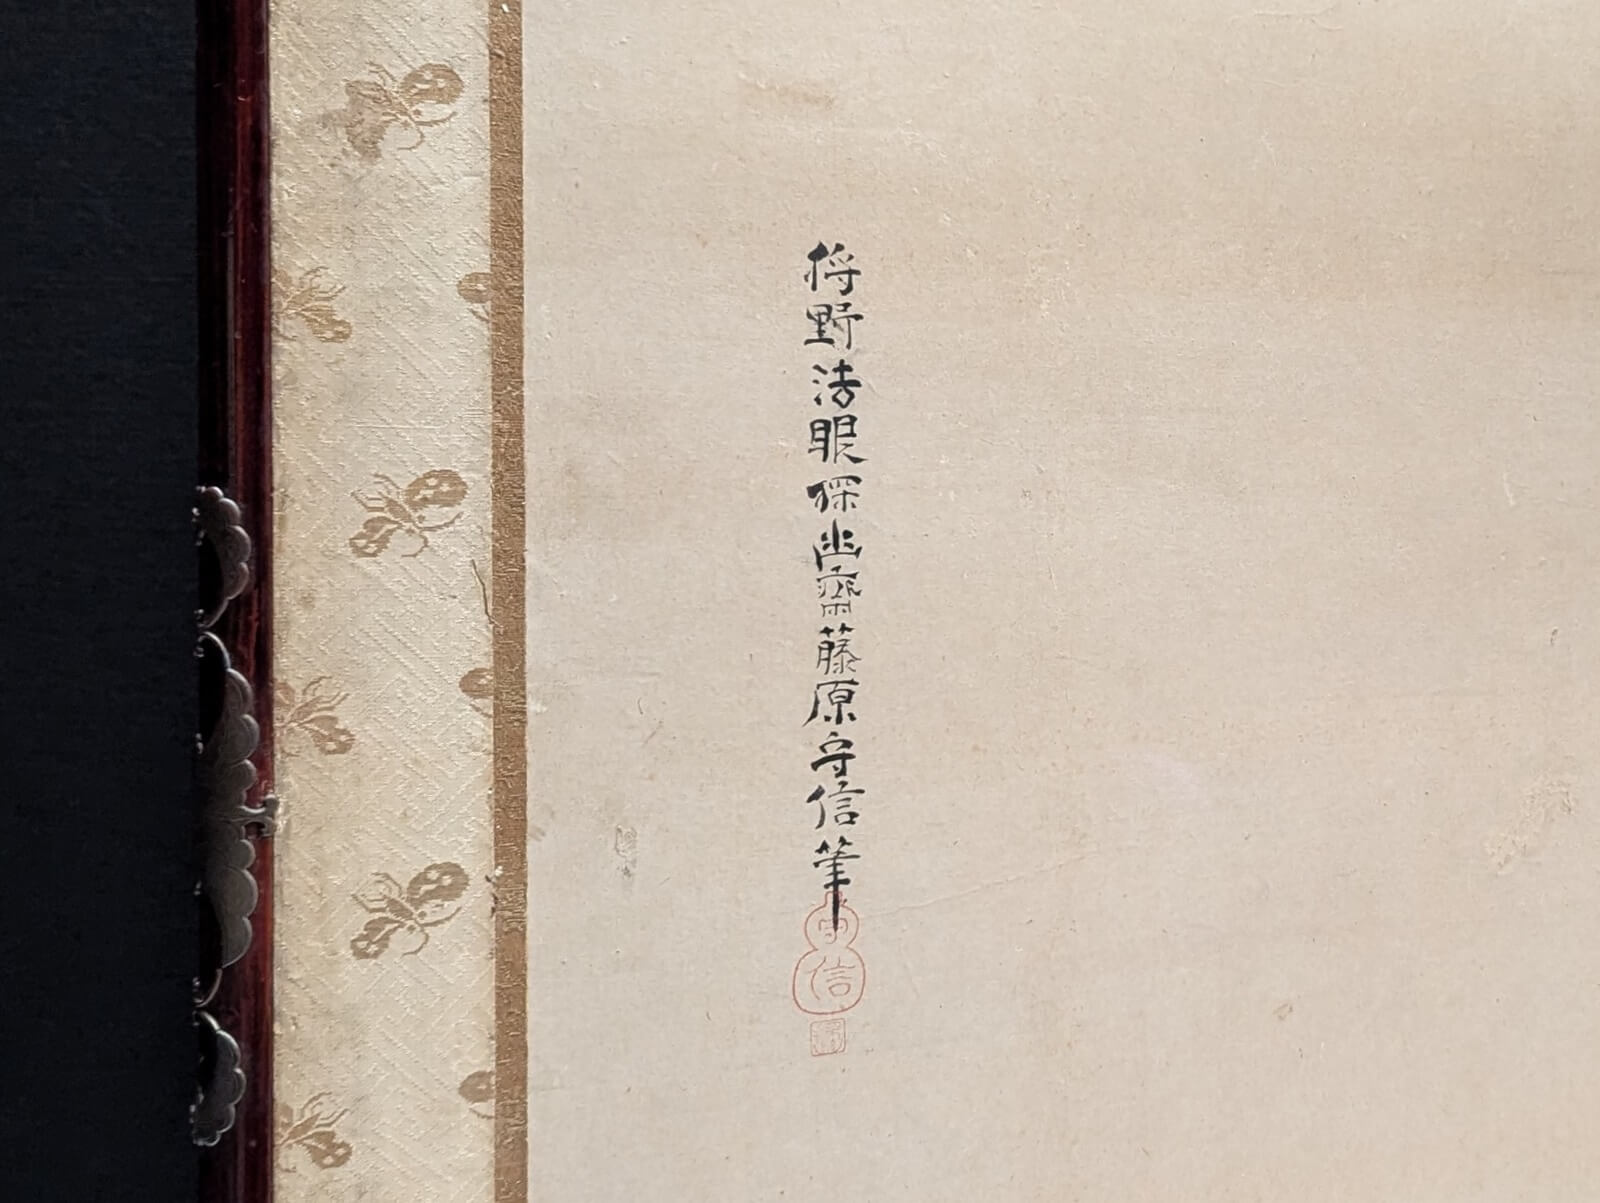 狩野法眼探幽齋藤原守信筆
守信